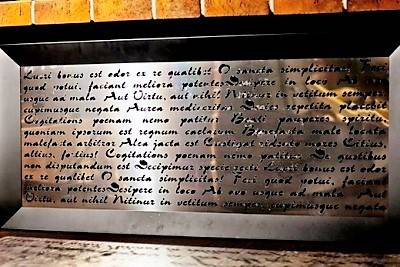 Lucri bonus est odor ex re qualibet O sancta simplicitas! Feci
quod potui, faciant meliora potentes Desipere in loco Ab ovo
usque ad mala Aut Virtu, aut nihil Nitinur in vetitum semper,
cupimusque negata Aurea mediocritas repetita placebit
Cogitationis poenam nemo patitur Beati pauperes spiritu,
quoniam ipsorum est regnum caelorum Benefacta male locata
malefacta arbitror Alea jacta est Castigat ridendo mores Citius,
altius, fortius! Cogitationis poenam nemo patitur De gustibus
non disputandum est Decipimur specie recti Lucri bonus est odor
ex re qualibet O sancta simplicitas! Feci quod potui, faciant
meliora potentes Desipere in loco Ab ovo usque ad mala Aut
Virtu, aut nihil Nitinur in vetitum semper, cupimusque negata